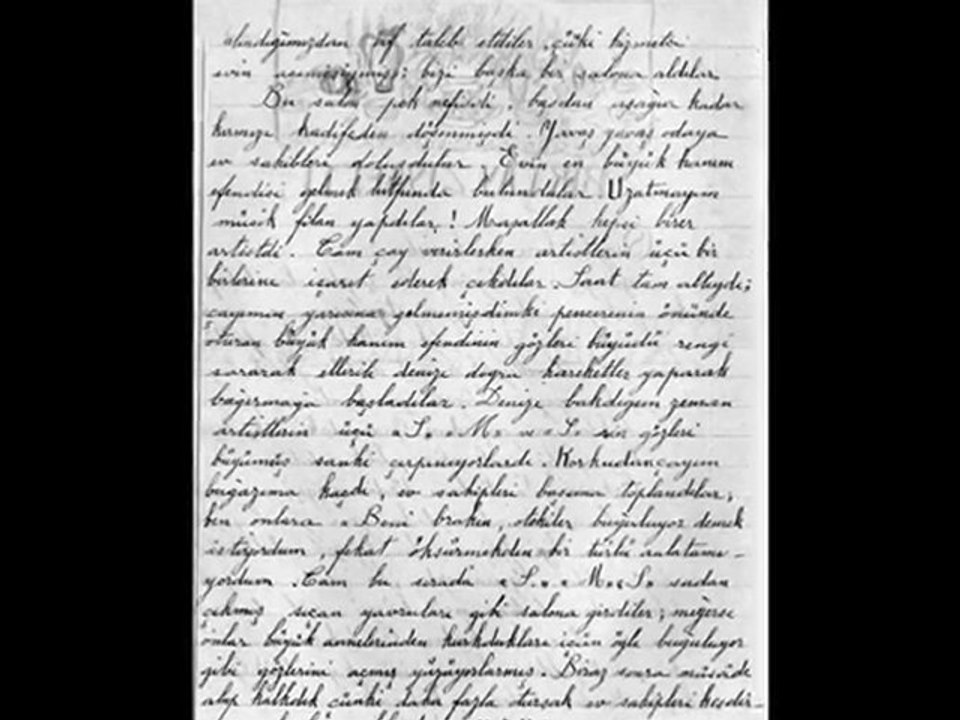 alındığımızdan af taleb etdiler, çünki hizmetci
evin acemisiymiş; bizi başka bir salona aldılar.
Bu salon pek nefisdi, başdan aşağıya kadar
kırmızı kadifeden döşenmişdi. Yavaş yavaş odaya
ev sahibleri doluşdular. Evin en büyük hanım
efendisi gelmek lutfunda bulundular. Uzatmayım
müsik filan yapdılar! Maşallah hepsi birer
artistdi. Tam çay verirlerken artistlerin üçü bir
birlerine işaret ederek çekdılar. Saat tam altıydı;
çayımın yarısına gelmemişdimki pencerenin önünde
oturan büyük hanım efendinin gözleri büyüdü rengi
sararak ellerile denize doğru hareketler yaparak
bağırmağa başladılar. Denize bakdığım zeman
artistlerin üçü "S" "M" ve "S" nin gözleri
büyümüş sanki çırpınıyorlardı. Korkudan çayım
buğazıma kaçdı, ev sahipleri başıma toplandılar,
ben onlara "Beni brakın, ötekiler buğuluyor demek
istiyordum, fekat öksürmekden bir türlü anlatamı-
yordum. Tam bu sırada "S" "M" "S" sudan
çıkmış sıçan yavruları gibi salona girdiler; meğerse
onlar büyük annelerinden korkdukları içün öyle buğuluyor
gibi gözlerini açmış yüzüyorlarmış. Biraz sonra müsâde
alıp kalkdık çünki daha fazla otursak ev sahipleri